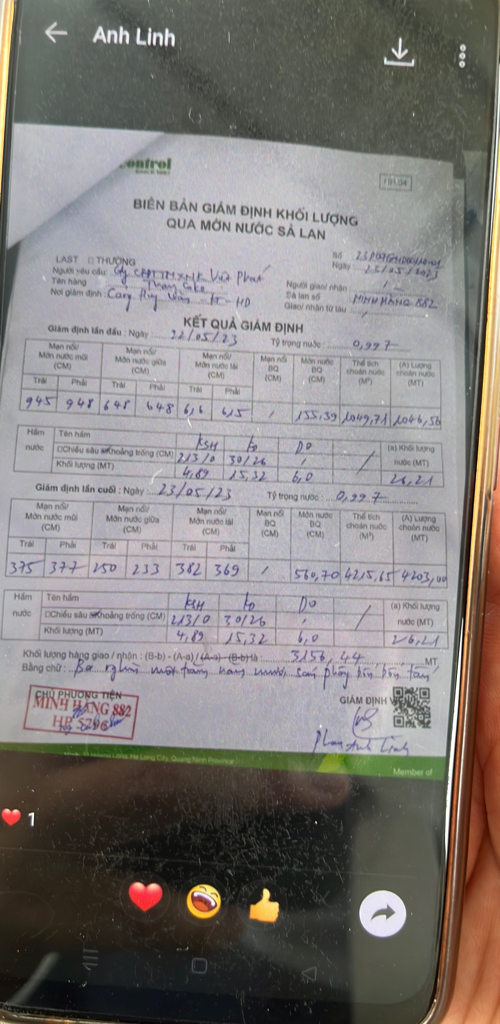 Anh Linh
control
BIÊN BẢN GIÁM ĐỊNH KHỐI LƯỢNG
QUA MỚN NƯỚC SÀ LAN
Số
LAST □ THƯỜNG Ngày 23/05/2023
Người yêu cầu: Cty CPĐT TM XNK Việt Phát Người giao/ nhận
Tên hàng : Than Coke Sà lan số : MINH HẰNG 882
Nơi giám định: Giao/ nhận từ tàu
KẾT QUẢ GIÁM ĐỊNH
Giám định lần đầu : Ngày 22/05/23 Tỷ trọng nước : 0,997
Mạn nổi/ Mớn nước mũi (CM) Mạn nổi/ Mớn nước giữa (CM) Mạn nổi/ Mớn nước lái (CM) Mạn nổi BQ (CM) Mớn nước BQ (CM) Thể tích choán nước (M³) (A) Lượng choán nước (MT)
Trái Phải Trái Phải Trái Phải
945 948 648 648 615 155,39 1049,71 1046,56
Hầm nước Tên hầm KSH Fo Do (a) Khối lượng nước (MT)
□Chiều sâu Khoảng trống (CM) 213/0 30/26
Khối lượng (MT) 4,89 15,32 6,0 26,21
Giám định lần cuối : Ngày 23/05/23 Tỷ trọng nước : 0,997
Mạn nổi/ Mớn nước mũi (CM) Mạn nổi/ Mớn nước giữa (CM) Mạn nổi/ Mớn nước lái (CM) Mạn nổi BQ (CM) Mớn nước BQ (CM) Thể tích choán nước (M³) (A) Lượng choán nước (MT)
Trái Phải Trái Phải Trái Phải
375 377 250 233 382 369 560,70 4215,65 4203,00
Hầm nước Tên hầm KSH Fo Do (a) Khối lượng nước (MT)
□Chiều sâu Khoảng trống (CM) 213/0 30/26
Khối lượng (MT) 4,89 15,32 6,0 26,21
Khối lượng hàng giao / nhận : (B-b) - (A-a) / (A-a) - (B-b) là : 3156,44 MT
Bằng chữ : Ba nghìn một trăm năm mươi sáu phẩy bốn bốn tấn
CHỦ PHƯƠNG TIỆN GIÁM ĐỊNH VIÊN
MINH HẰNG 882
HP
Phan Anh Linh
Ha Long City, Quang Ninh Province
Member of
1